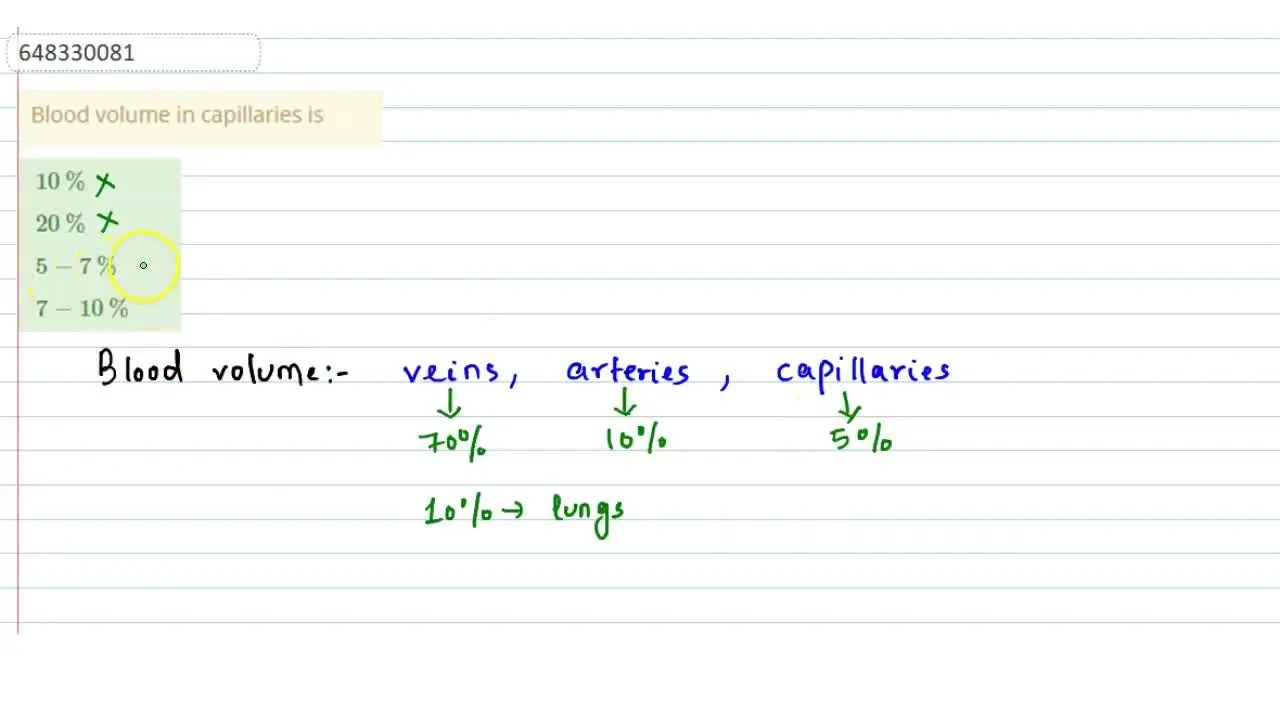 648330081
Blood volume in capillaries is
10 % ×
20 % ×
5 − 7 %
7 − 10 %
Blood volume:- veins, arteries, capillaries
↓ ↓ ↓
70% 10% 5%
10% → lungs